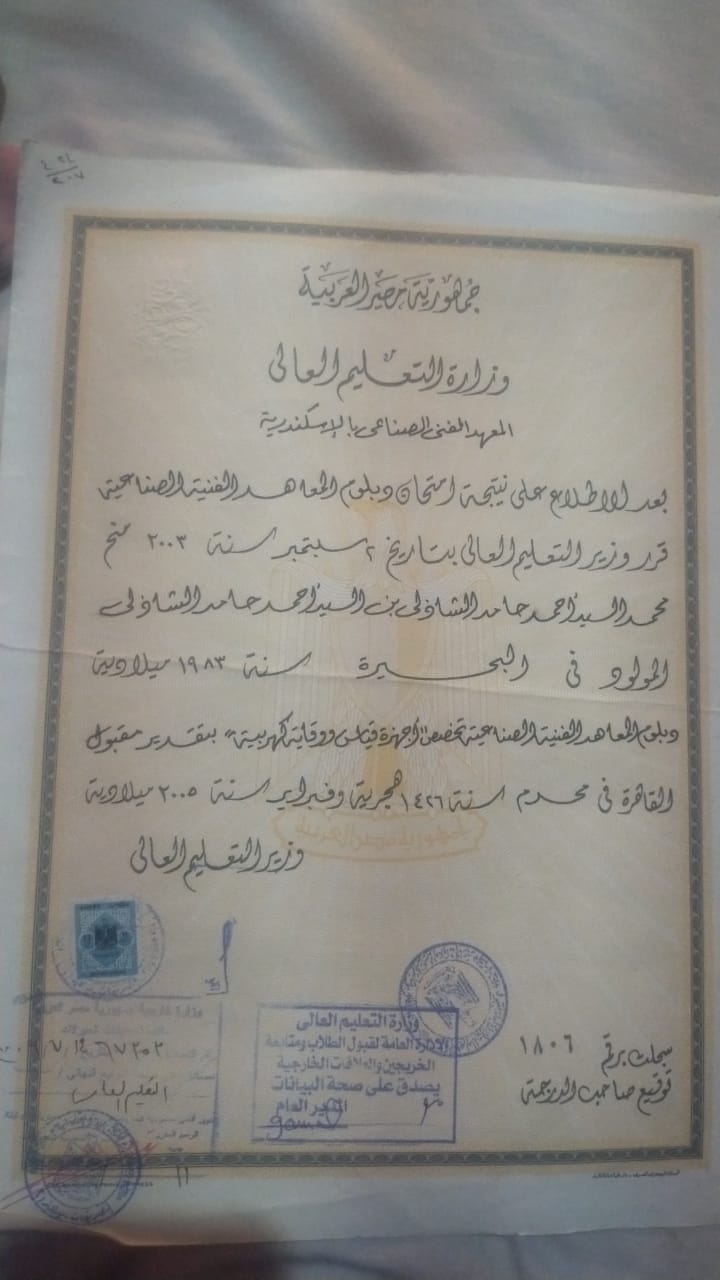 جمهورية مصر العربية
وزارة التعليم العالى
المعهد الفنى الصناعى بالإسكندرية
بعد الاطلاع على نتيجة امتحان دبلوم المعاهد الفنية الصناعية
قرر وزير التعليم العالى بتاريخ ٢ سبتمبر سنة ٢٠٠٣ منح
محمد السيد أحمد حامد الشاذلى بن السيد أحمد حامد الشاذلى
المولود فى البحيرة سنة ١٩٨٣ ميلادية
دبلوم المعاهد الفنية الصناعية تخصص "أجهزة قياس ووقاية كهربية" بتقدير مقبول
القاهرة فى محرم سنة ١٤٢٦ هجرية وفبراير سنة ٢٠٠٥ ميلادية
جمهورية مصر العربية
وزير التعليم العالى
وزارة التعليم العالى
الإدارة العامة لقبول الطلاب ومتابعة
الخريجين والعلاقات الخارجية
يصدق على صحة البيانات
المدير العام
سجلت برقم ١٨٠٦
توقيع صاحب الدرجة
وزارة خارجية جمهورية مصر العربية